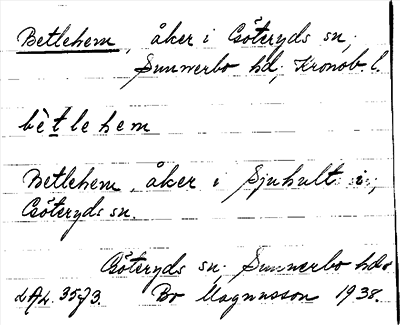 Betlehem, åker i Göteryds sn,
Sunnerbo hd, Kronob. l.
bètlehem
Betlehem, åker i Sjuhult i,
Göteryds sn.
Göteryds sn. Sunnerbo hd
LAL. 3573. Bo Magnusson 1938.